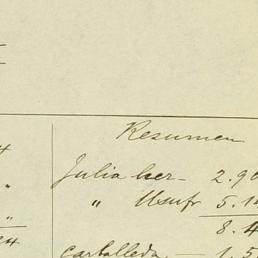 Resumen
4 Julia her- 2.90
" " Usufr 5.1
" 8.4
24 carballeda — 1.5